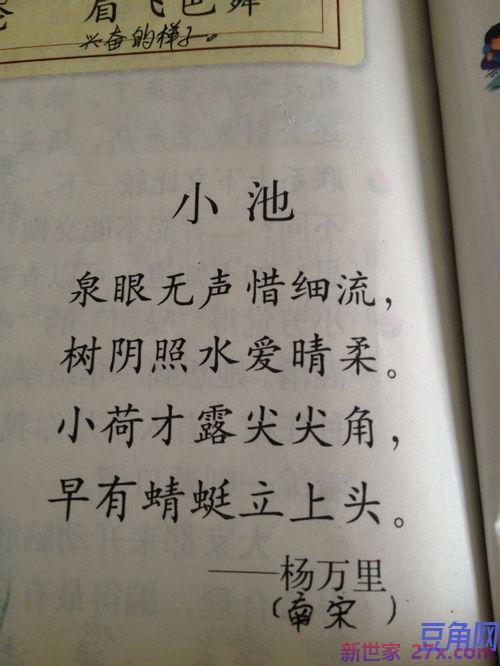 眉飞色舞
兴奋的样子。
小池
泉眼无声惜细流，
树阴照水爱晴柔。
小荷才露尖尖角，
早有蜻蜓立上头。
——杨万里
（南宋）
豆角网
新世家 27x.com